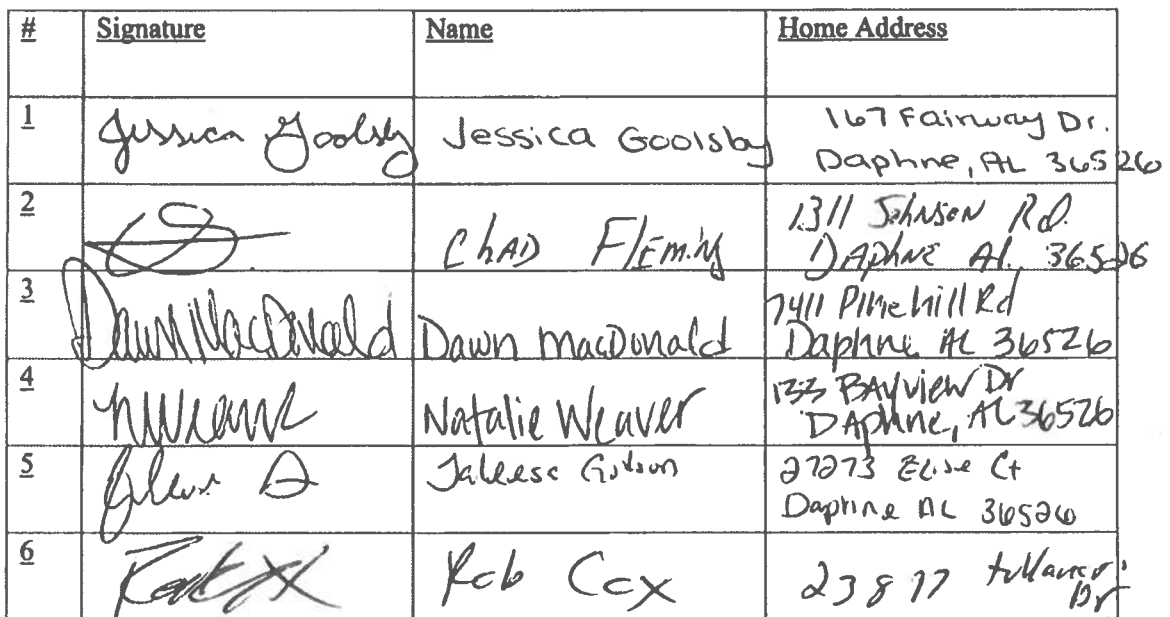 # Signature Name Home Address
1 Jessica Goolsby Jessica Goolsby 167 Fairway Dr.
Daphne, AL 36526
2 Chad Fleming 1311 Johnson Rd.
Daphne Al. 36526
3 Dawn MacDonald Dawn MacDonald 7411 Pinehill Rd
Daphne AL 36526
4 NWeaver Natalie Weaver 133 Bayview Dr
Daphne, AL 36526
5 27273 Elise Ct
Daphne AL 36526
6 Rob Cox 23877
Dr